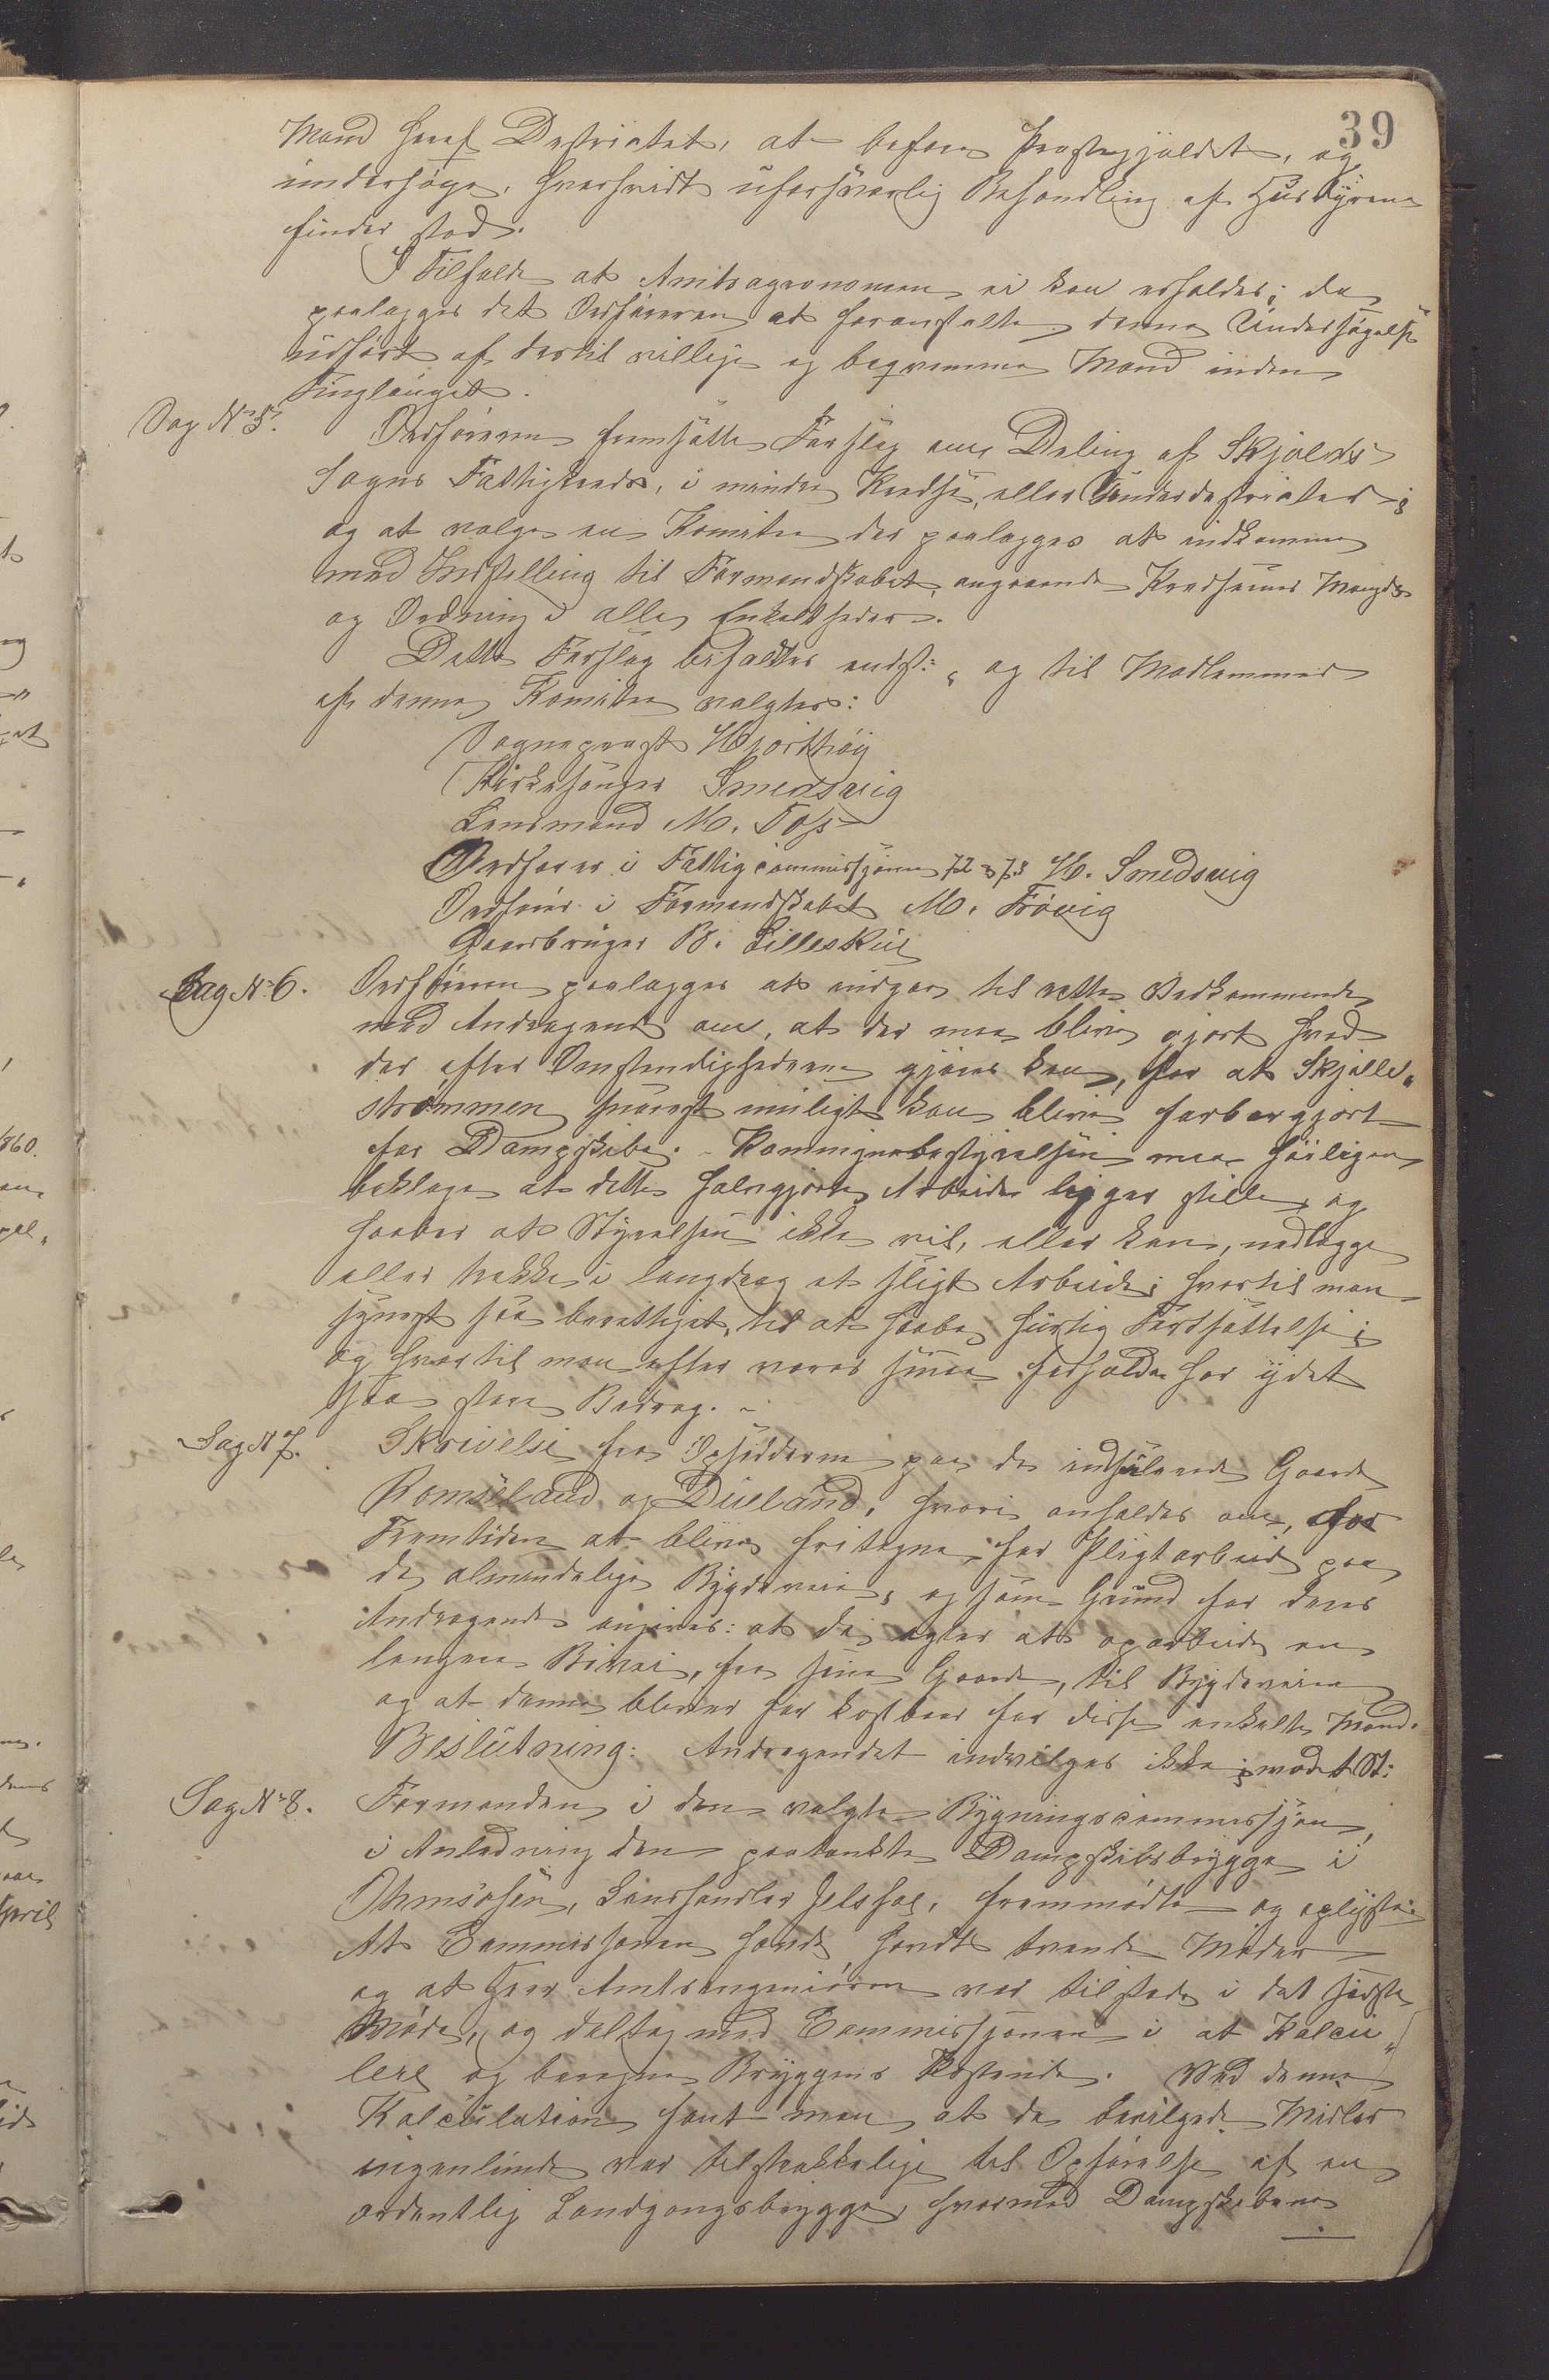 39
Mand hvert Destriktet, at befare Prestegjældet, og
undersøge, hvorhvidt uforsvarlig Behandling af Husdyrene
finder sted.
I Tilfælde at Amtsagronomen ei kan erholdes; da
paalægges det Ordføreren at foranstalte denne Undersøgelse
udført af dertil villige og beqvemme Mænd inden
Tinglauget.
Sag No 5.
Ordføreren fremsatte Forslag om Deling af Skjolds
Sogns Fattigkreds, i mindre Kredse, eller Underdestrikter;
og at vælge en Komitee der paalægges at indkomme
med Instelling til Formandskabet, angaaende Kredsenes Mængde
og Ordning i alle Enkeltheder.
Dette Forslag bifaldtes endst:, og til Medlemmer
af denne Komitee valgtes:
Sogneprest Hjorthøy
Kirkesanger Smedsvig
Lensmand M. Foss
Ordfører i Fattigcommissjonen 72-73 H. Smedsvig
Ordfører i Formandskabet M. Frövig
Gaardbruger B. Lilleskug
Sag No 6.
Ordføreren paalægges at indgaa til rette Vedkommende
med Andragende om, at der maa blive gjort hvad
der efter Omstendighederne gjøres kan, for at Skjolde-
strømmen snarest muligt kan blive farbargjort
for Dampskibe. - Kommunebestyrelsen maa høiligen
beklage at dette halvgjorte Arbeide ligger stille, og
haaber at Styrelsen ikke vil, eller kan, nedlægge
eller trække i langdrag et sligt Arbeide; hvortil man
synest saa berettiget, til at haabe hurtig Fortsættelse;
og hvortil man efter vores smaa forholde har ydet
saa store Bedrag. -
Sag N 7.
Skrivelse fra Opsidderne paa de indhulende Gaarde
Romseland og Dueland, hvori anholdes om, for
Fremtiden at blive fritagne for Pligtarbeid paa
de almindelige Bygdeveie, og som Grund for deres
Andragende angives: at de agter at oparbeide en
længere Bivei, fra sine Gaarde, til Bygdeveien
og at denne bliver for kostbar for disse enkelte Mænd.
Beslutning: Andragendet indvilges ikke; imod et St:
Sag No 8.
Formanden i den valgte Bygningscommissjon,
i Anledning den paatænkte Dampskibsbrygge i
Ølmsosen, Landhandler Jelsha, fremmødte og oplyste:
At Commissionen havde havdt tvende Møder
og at Herr Amtsingeniøren var tilstede i det sidste
Møde, og deltog med Commissjonen i at Kalcu-
lere og beregne Bryggens Kostende. Ved denne
Kalculation fant man at de bevilgede Midler
ingenlunde var tilstrækkelige til Opførelse af en
ordentlig Landgangsbrygge, hvormed Dampskibene